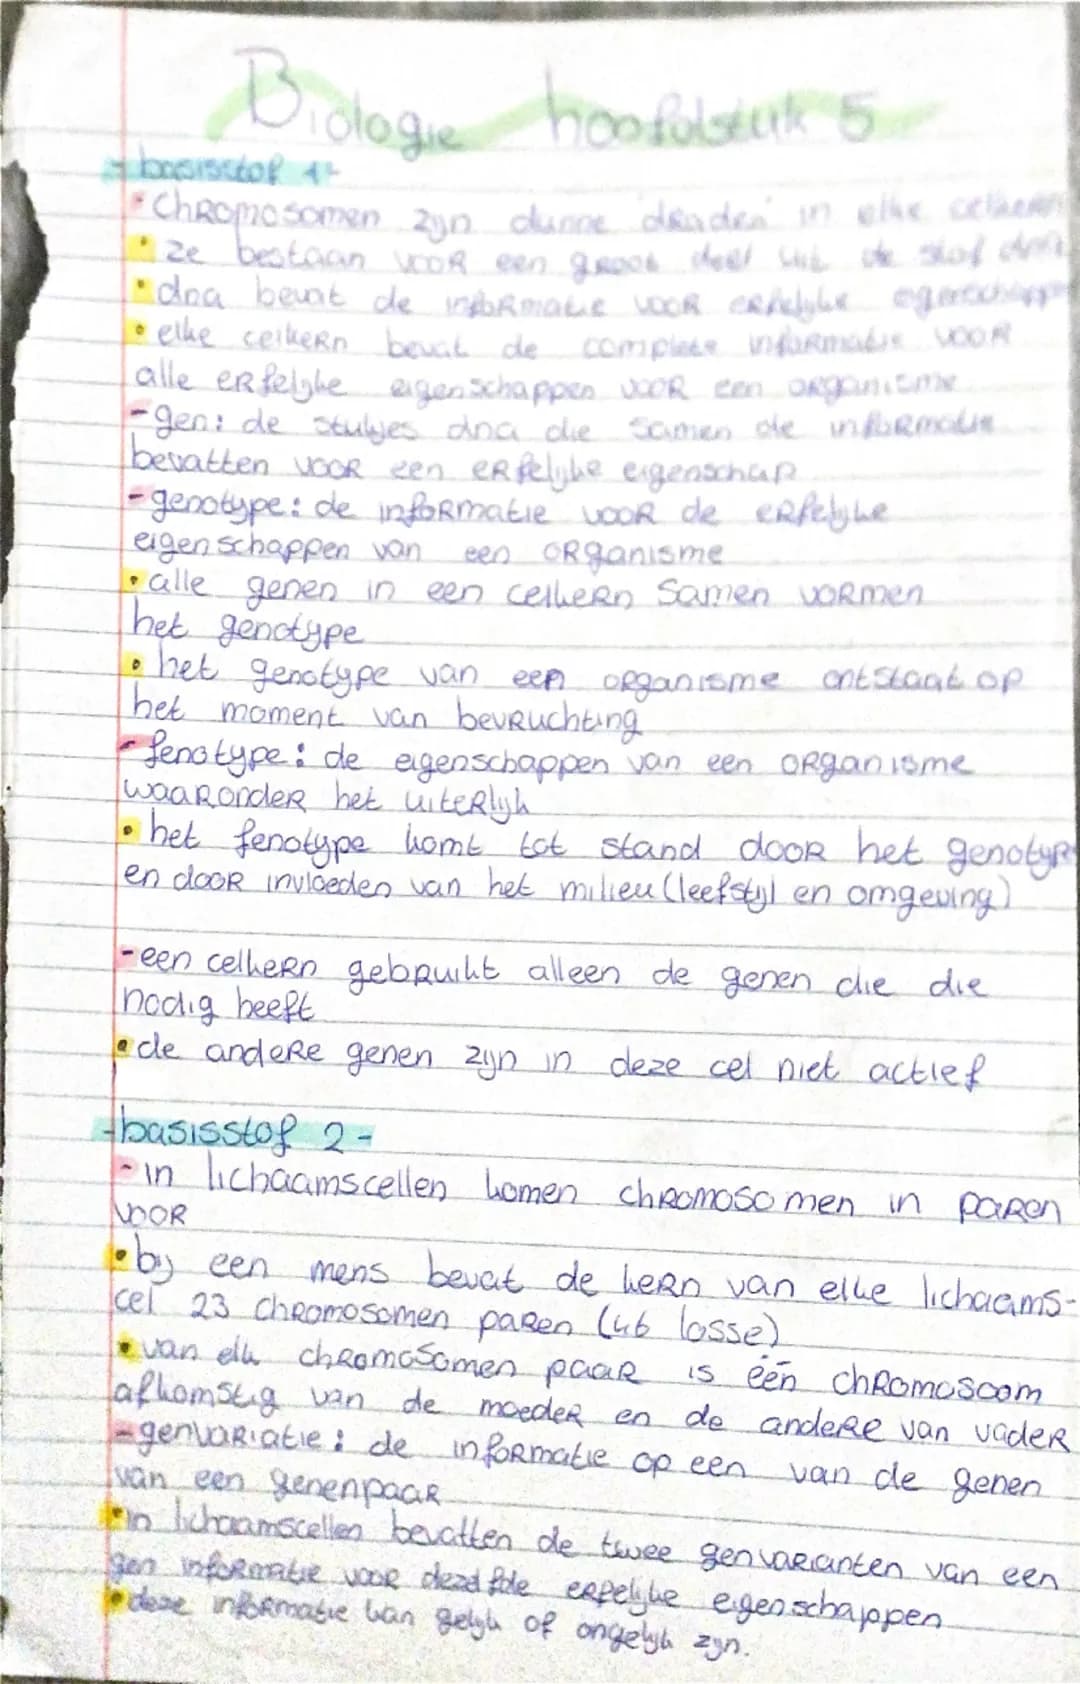 Biologie hoofdstuk 5
- basisstof 1 -
• Chromosomen zijn dunne draden in elke celkern
• ze bestaan voor een groot deel uit de stof dna
• dna bevat de informatie voor erfelijke eigenschappen
• elke celkern bevat de complete informatie voor
alle erfelijke eigenschappen voor een organisme
- gen: de stukjes dna die samen de informatie
bevatten voor een erfelijke eigenschap
- genotype: de informatie voor de erfelijke
eigenschappen van een organisme
• alle genen in een celkern samen vormen
het genotype
• het genotype van een organisme ontstaat op
het moment van bevruchting
- fenotype: de eigenschappen van een organisme
waaronder het uiterlijk
• het fenotype komt tot stand door het genotype
en door invloeden van het milieu (leefstijl en omgeving)
- een celkern gebruikt alleen de genen die die
nodig heeft
• de andere genen zijn in deze cel niet actief
- basisstof 2 -
- in lichaamscellen komen chromosomen in paren
voor
• bij een mens bevat de kern van elke lichaams-
cel 23 chromosomen paren (46 losse)
• van elk chromosomen paar is één chromosoom
afkomstig van de moeder en de andere van vader
- genvariatie: de informatie op een van de genen
van een genenpaar
• in lichaamscellen bevatten de twee genvarianten van een
gen informatie voor dezelfde erfelijke eigenschappen
• deze informatie kan gelijk of ongelijk zijn.